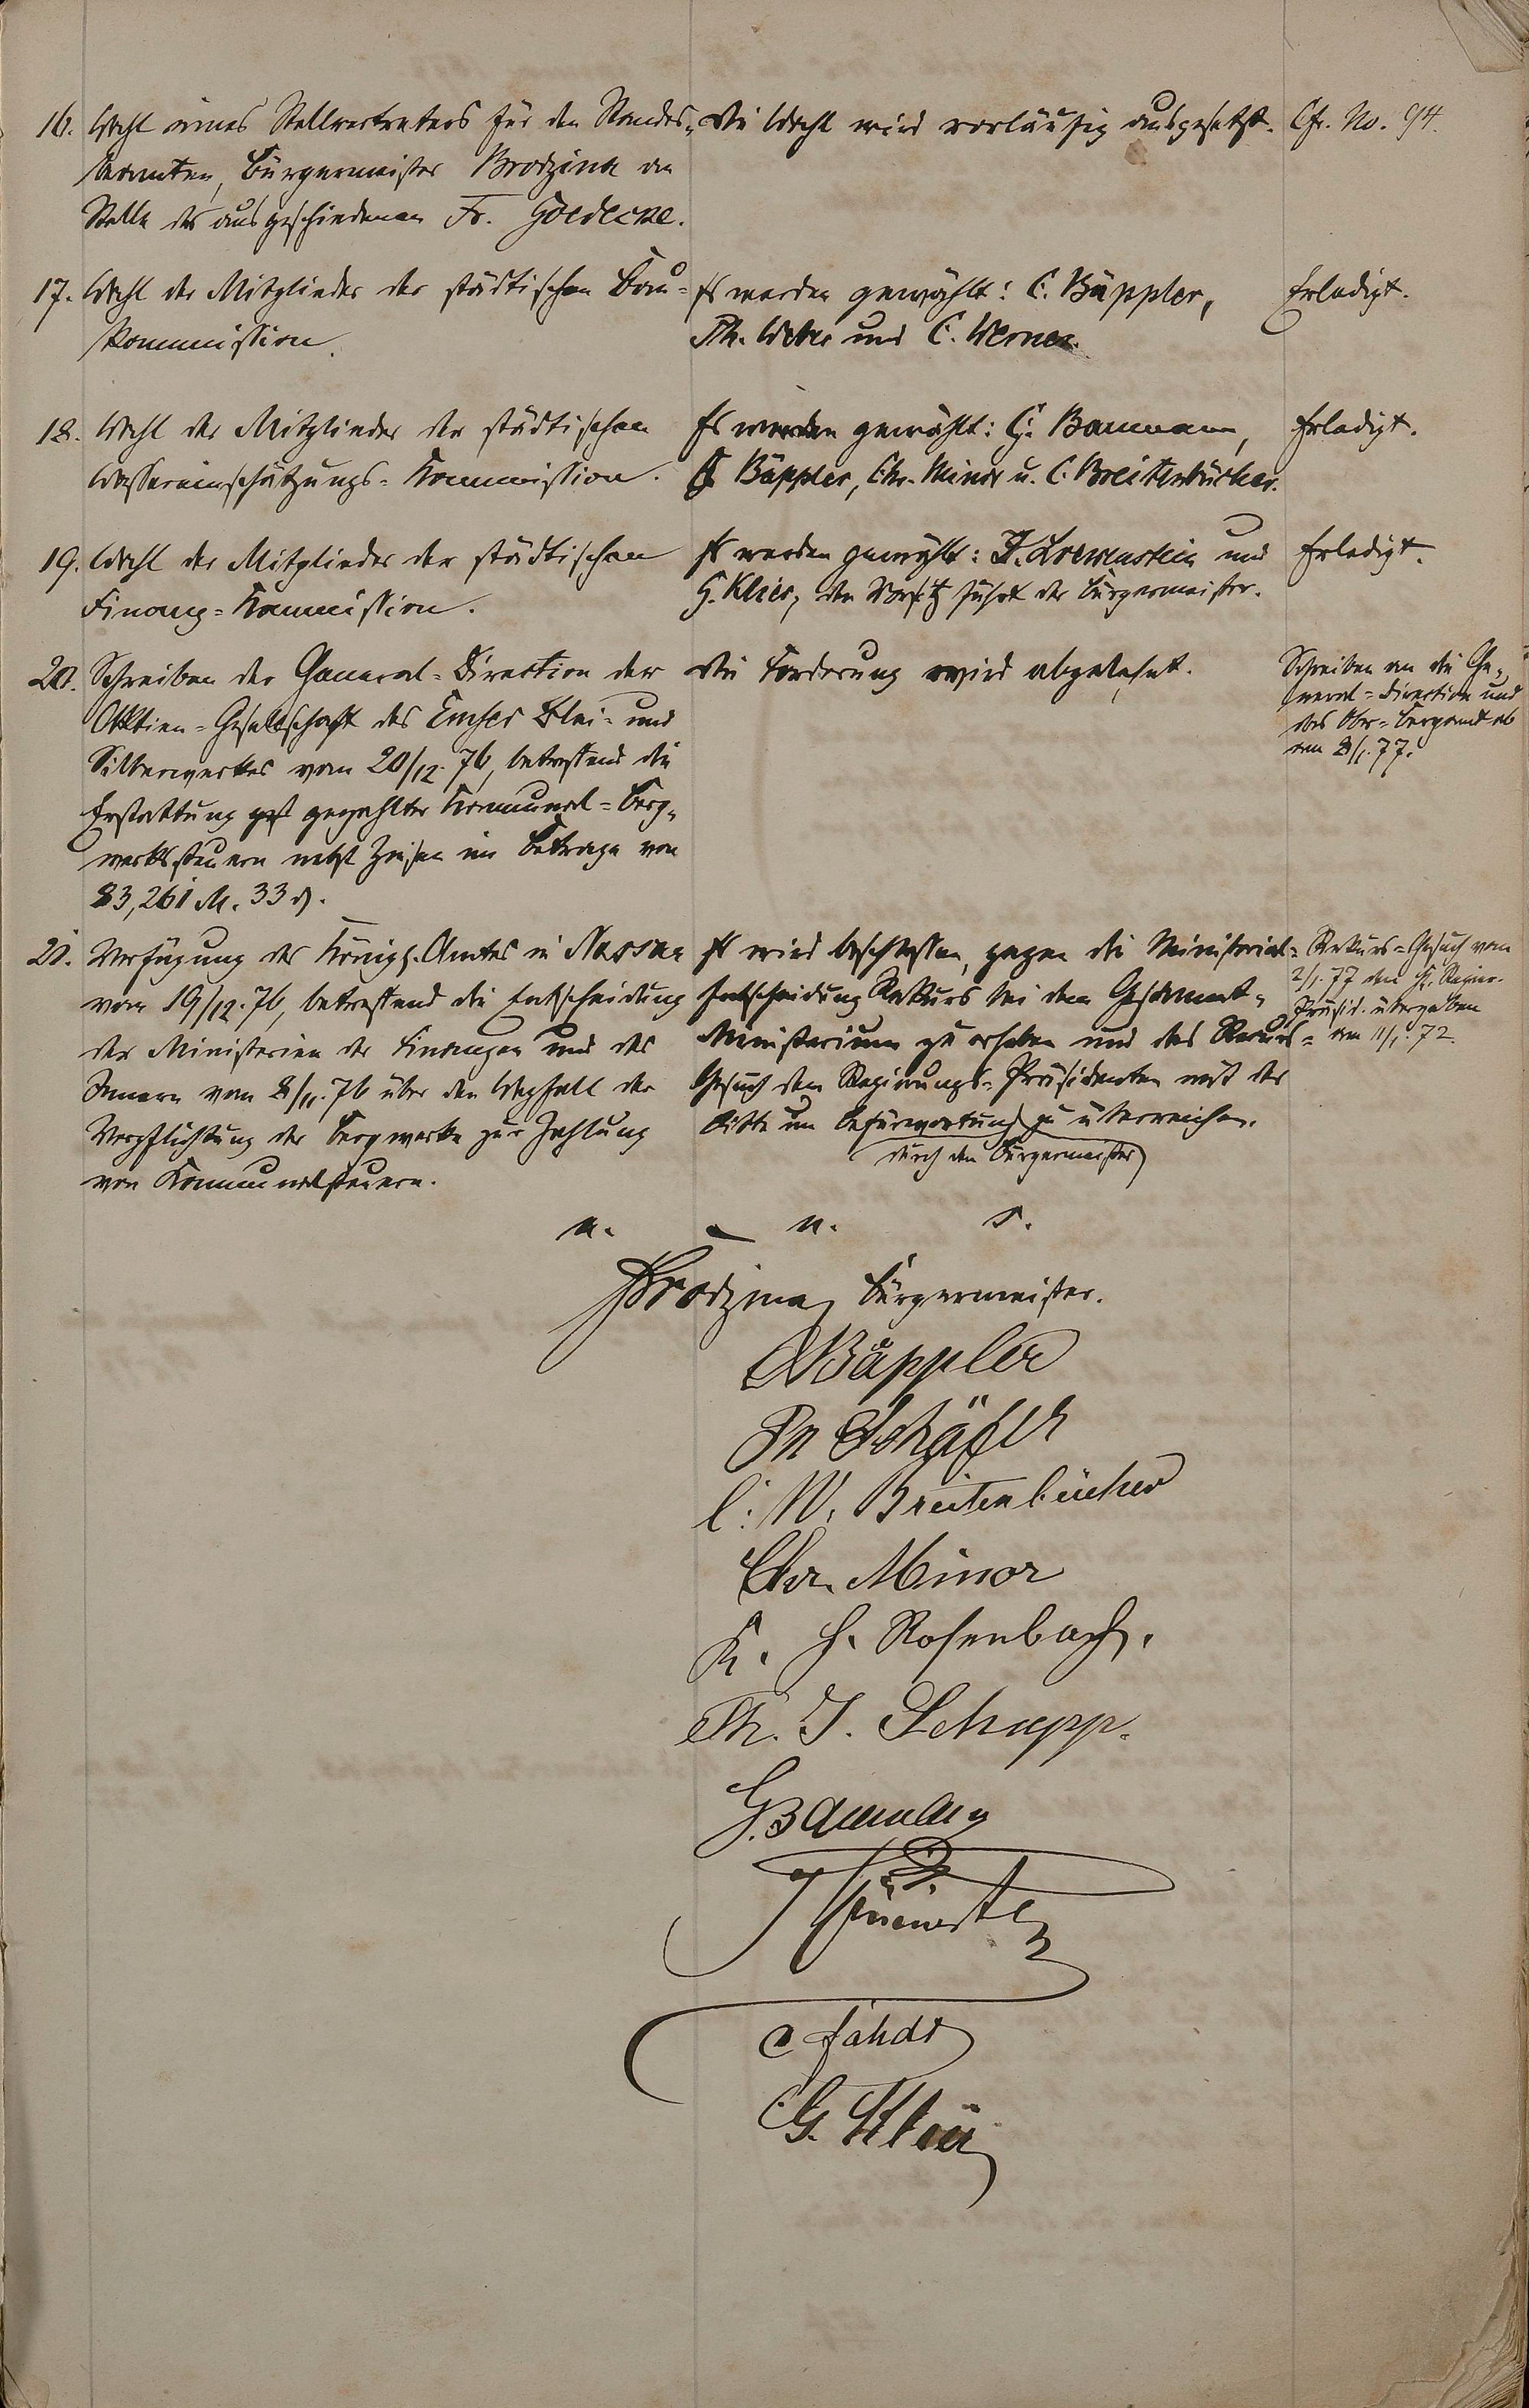 16. Wahl eines Stellvertreters für den Standes-
beamten, Bürgermeister Brodzina an
Stelle des ausgeschiedenen Fr. Goedecke.
Die Wahl wird vorläufig ausgesetzt.
Cfr. No. 94.
17. Wahl der Mitglieder der städtischen Bau-
Kommission.
Es werden gewählt: C. Bäppler,
Ph. Weber und C. Werner.
Erledigt.
18. Wahl der Mitglieder der städtischen
Wassereinschätzungs-Kommission.
Es werden gewählt: G. Baumann,
C. Bäppler, Chr. Minor u. C. Breitenbücher.
Erledigt.
19. Wahl der Mitglieder der städtischen
Finanz-Kommission.
Es werden gewählt: J. Loewenstein und
G. Klier, den Vorsitz führt der Bürgermeister.
Erledigt.
20. Schreiben der General-Direction der
Aktien-Gesellschaft des Emser Blei- und
Silberwerkes vom 20/12.76, betreffend die
Erstattung gezahlter Kommunal-Berg-
werkssteuern nebst Zinsen im Betrage von
83,261 M. 33 ₰.
Die Forderung wird abgelehnt.
Schreiben an die Ge-
neral-Direction und
das Ober-Bergamt ab
am 8/1.77.
21. Verfügung des Königl. Amtes in Nassau
vom 19/12.76, betreffend die Entscheidung
der Ministerien der Finanzen und des
Innern vom 8/11.76 über den Wegfall der
Verpflichtung der Bergwerke zur Zahlung
von Kommunalsteuern.
Es wird beschlossen, gegen die Ministerial-
Entscheidung Rekurs bei dem Gesammt-
Ministerium zu erheben und das Recurs-
Gesuch dem Regierungs-Präsidenten mit der
Bitte um Befürwortung zu überreichen.
durch den Bürgermeister
Rekurs-Gesuch vom
2/1.77 dem H. Regier.
Präsid. übergeben
am 11/1.72.
u. s.
Brodzina, Bürgermeister.
C Bäppler
Ph Schäfer
C. W. Breitenbücher
Chr. Minor
K. H. Rosenbach.
Ph. J. Schupp.
G. Baumann
G. Klier